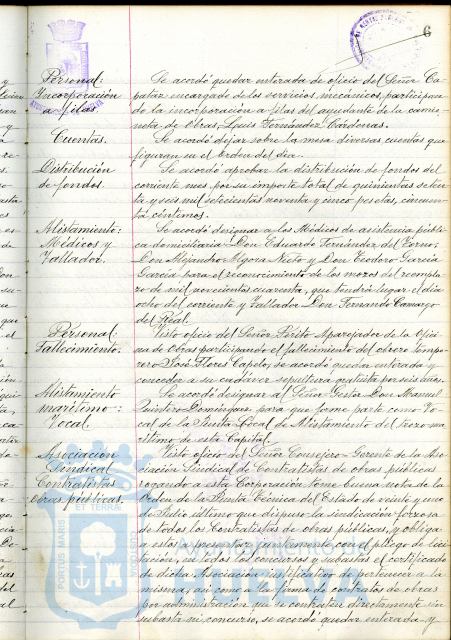 6
Personal:
Incorporación
a filas
Se acordó quedar enterada de oficio del Señor Ca-
pataz encargado de los servicios mecánicos, participan-
do la incorporación a filas del ayudante de la camio-
neta de Obras, Luis Fernández Cárdenas.
Cuentas.
Se acordó dejar sobre la mesa diversas cuentas que
figuran en el Orden del dia.
Distribución
de fondos.
Se acordó aprobar la distribución de fondos del
corriente mes, por su importe total de quinientas
y seis mil setecientas noventa y cinco pesetas, cincuen-
ta céntimos.
Alistamiento:
Médicos y
Tallador.
Se acordó designar a los Médicos de asistencia públi-
ca domiciliaria Don Eduardo Fernández del Torno,
Don Alejandro Algora Nieto y Don Teodoro García
García para el reconocimiento de los mozos del reempla-
zo de mil novecientos cuarenta, que tendrá lugar el dia
ocho del corriente y Tallador Don Fernando Camargo
del Real.
Personal
Fallecimiento.
Visto oficio del Señor Perito Aparejador de la Ofici-
na de Obras participando el fallecimiento del obrero tempo-
rero José Flores Capelo, se acordó quedar enterada y
conceder a su cadaver sepultura gratuita por seis años.
Alistamiento
marítimo:
Vocal.
Se acordó designar al Señor Gestor Don Manuel
Quintero Dominguez para que forme parte como Vo-
cal de la Junta Local de Alistamiento del Trozo ma-
rítimo de esta Capital.
Asociación
Sindical
Contratistas
Obras públicas.
Visto oficio del Señor Consejero-Gerente de la Aso-
ciación Sindical de Contratistas de obras públicas
rogando a esta Corporación tome buena nota de la
Orden de la Junta Técnica del Estado de veinte y uno
de Julio último que dispuso la sindicación forzosa
de todos los Contratistas de obras públicas, y obliga
a estos a presentar juntamente con el pliego de lici-
tación, en todos los concursos y subastas el certificado
de dicha Asociación justificativo de pertenecer a la
misma, así como a la firma de contratos de obras
por administración que se contraten directamente sin
subasta ni concurso, se acordó quedar enterada y
PORTUS MARIS
ET TERRAE
CUSTODIA
Ayuntamiento de